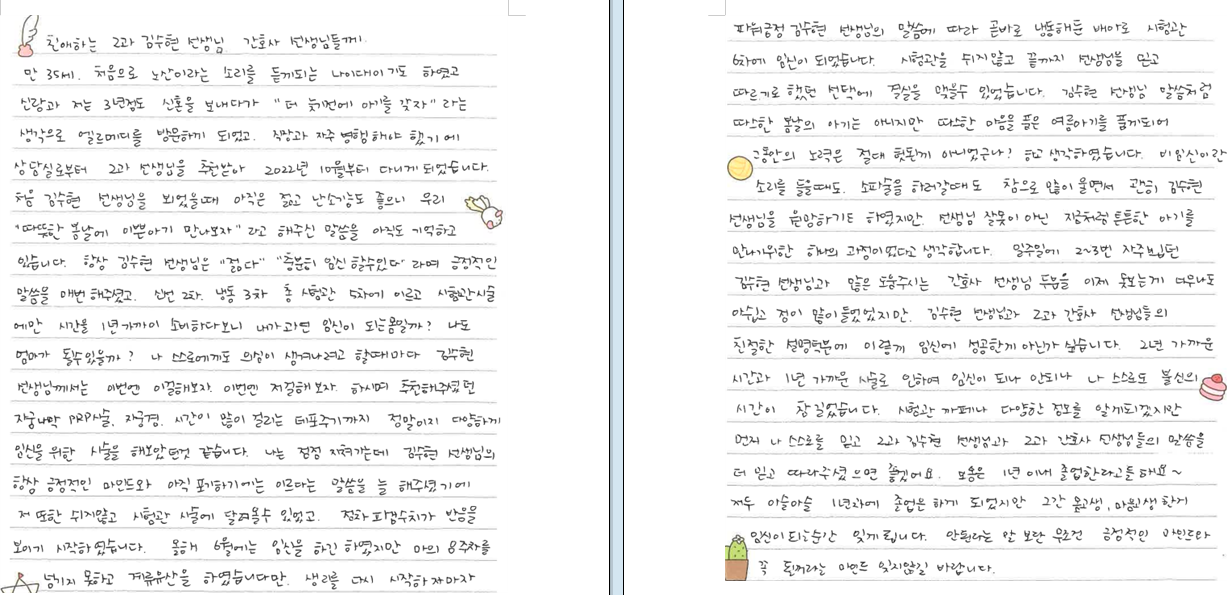 친애하는 2과 김수현 선생님, 간호사 선생님들께!
만 35세. 처음으로 노산이라는 소리를 듣게되는 나이대이기도 하였고
신랑과 저는 3년정도 신혼을 보내다가 "더 늦기전에 아기를 갖자" 라는
생각으로 엘르메디를 방문하게 되었고, 직장과 자주 병행해야 했기에
상담실로부터 2과 선생님을 추천받아 2022년 10월부터 다니게 되었습니다.
처음 김수현 선생님을 뵈었을때 아직은 젊고 난소기능도 좋으니 우리
"따뜻한 봄날에 이쁜아기 만나보자" 라고 해주신 말씀을 아직도 기억하고
있습니다. 항상 김수현 선생님은 "젊다" "충분히 임신 할수있다" 라며 긍정적인
말씀을 매번 해주셨고, 신선 2차, 냉동 3차 총 시험관 5차에 이르고 시험관시술
에만 시간을 1년 가까이 소비하다보니 내가 과연 임신이 되는몸일까? 나도
엄마가 될수있을까? 나 스스로에게도 의심이 생겨나려고 할때마다 김수현
선생님께서는 이번엔 이걸해보자, 이번엔 저걸해보자, 하시며 추천해주셨던
자궁내막 PRP시술, 자궁경, 시간이 많이 걸리는 데포주기까지 정말이지 다양하게
임신을 위한 시술을 해보았던것 같습니다. 나는 점점 지쳐가는데 김수현 선생님의
항상 긍정적인 마인드와 아직 포기하기에는 이르다는 말씀을 늘 해주셨기에
저 또한 쉬지않고 시험관 시술에 달려올수 있었고, 점차 피검수치가 반응을
보이기 시작하였습니다. 올해 6월에는 임신을 하긴 하였지만 마의 8주차를
넘기지 못하고 계류유산을 하였습니다만, 생리를 다시 시작하자마자
파워긍정 김수현 선생님의 말씀에 따라 곧바로 냉동해둔 배아로 시험관
6차에 임신이 되었습니다. 시험관을 쉬지않고 끝까지 선생님을 믿고
따르기로 했던 선택에 결실을 맺을수 있었습니다. 김수현 선생님 말씀처럼
따스한 봄날의 아기는 아니지만 따스한 마음을 품은 여름아기를 품게되어
그동안의 노력은 절대 헛된게 아니었구나? 하고 생각하였습니다. 비임신이란
소리를 들을때도, 소파술을 하러갈때도 참으로 많이 울면서 괜히 김수현
선생님을 원망하기도 하였지만, 선생님 잘못이 아닌 지금처럼 튼튼한 아기를
만나기위한 하나의 과정이었다고 생각합니다. 일주일에 2~3번 자주뵙던
김수현 선생님과 많은 도움주시는 간호사 선생님 두분을 이제 못보는게 너무나도
아쉽고 정이 많이들었었지만, 김수현 선생님과 2과 간호사 선생님들의
친절한 설명덕분에 이렇게 임신에 성공한게 아닌가 싶습니다. 2년 가까운
시간과 1년 가까운 시술로 인하여 임신이 되나 안되나 나 스스로도 불신의
시간이 참 길었습니다. 시험관 카페나 다양한 정보를 알게되겠지만
먼저 나 스스로를 믿고 2과 김수현 선생님과 2과 간호사 선생님들의 말씀을
더 믿고 따라주셨으면 좋겠어요. 보통은 1년 이내 졸업한다고들 해요~
저두 아슬아슬 1년차에 졸업은 하게 되었지만 그간 몸고생, 마음고생 한거
임신이 되는순간 잊게 됩니다. 안된다는 말 보단 무조건 긍정적인 마인드와
꼭 될꺼라는 마인드 잊지않길 바랍니다.